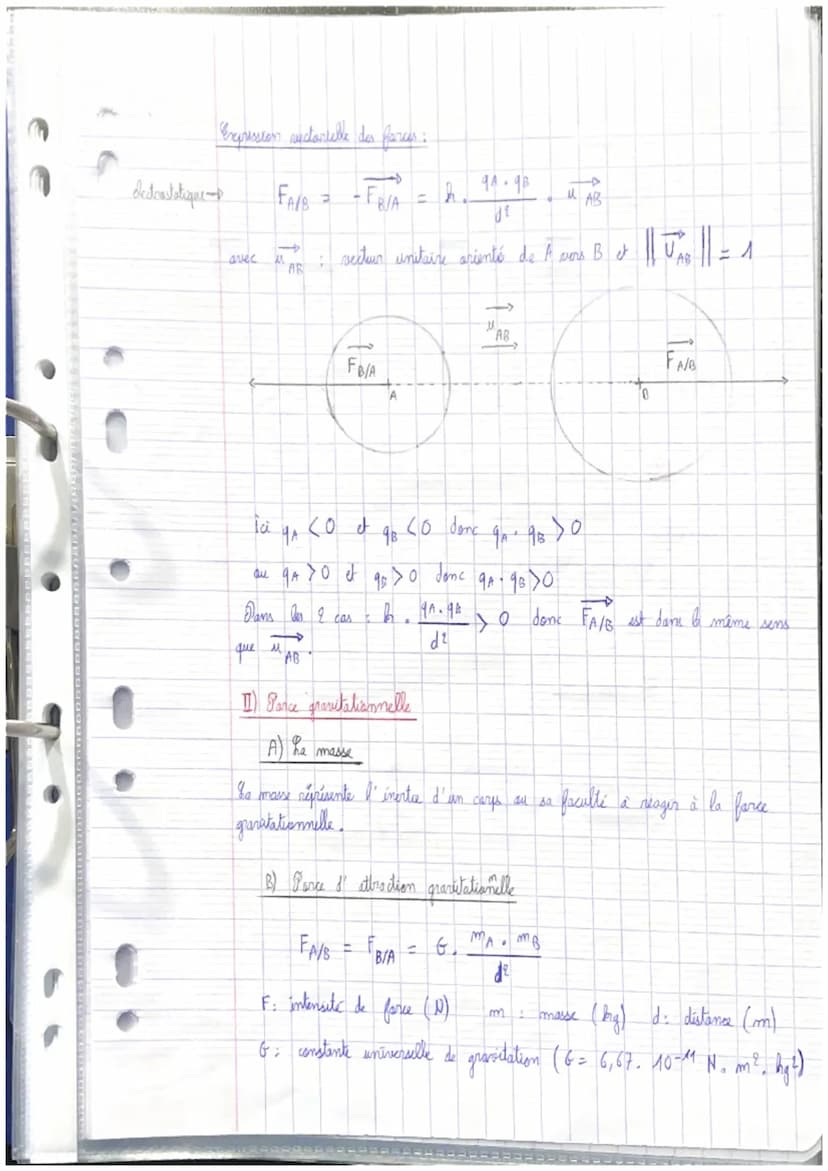 Expression vectorielle des forces :
électrostatique → F_{A/B} = -\vec{F_{B/A}} = k . \frac{q_A . q_B}{d^2} . \vec{u_{AB}}
avec \vec{u_{AB}} : vecteur unitaire orienté de A vers B et ||\vec{U_{AB}}|| = 1
\vec{u_{AB}}
\vec{F_{B/A}} \vec{F_{A/B}}
A B
ici q_A < 0 et q_B < 0 donc q_A . q_B > 0
ou q_A > 0 et q_B > 0 donc q_A . q_B > 0
Dans les 2 cas : k . \frac{q_A . q_B}{d^2} > 0 donc \vec{F_{A/B}} est dans le même sens
que \vec{u_{AB}}.
II) Force gravitationnelle
A) La masse
La masse représente l'inertie d'un corps ou sa faculté à réagir à la force
gravitationnelle.
B) Force d'attraction gravitationnelle
F_{A/B} = F_{B/A} = G . \frac{m_A . m_B}{d^2}
F : intensité de force (N) m : masse (kg) d : distance (m)
G : constante universelle de gravitation (G = 6,67 . 10^{-11} N . m^2 . kg^2)